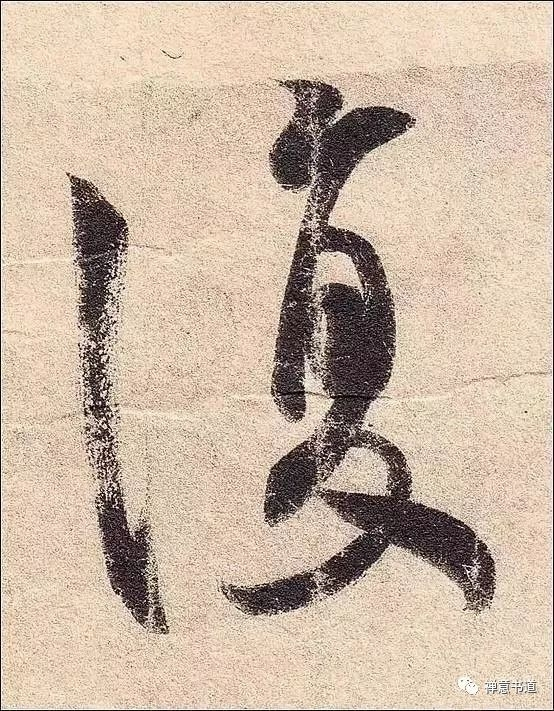 復
禅意书道